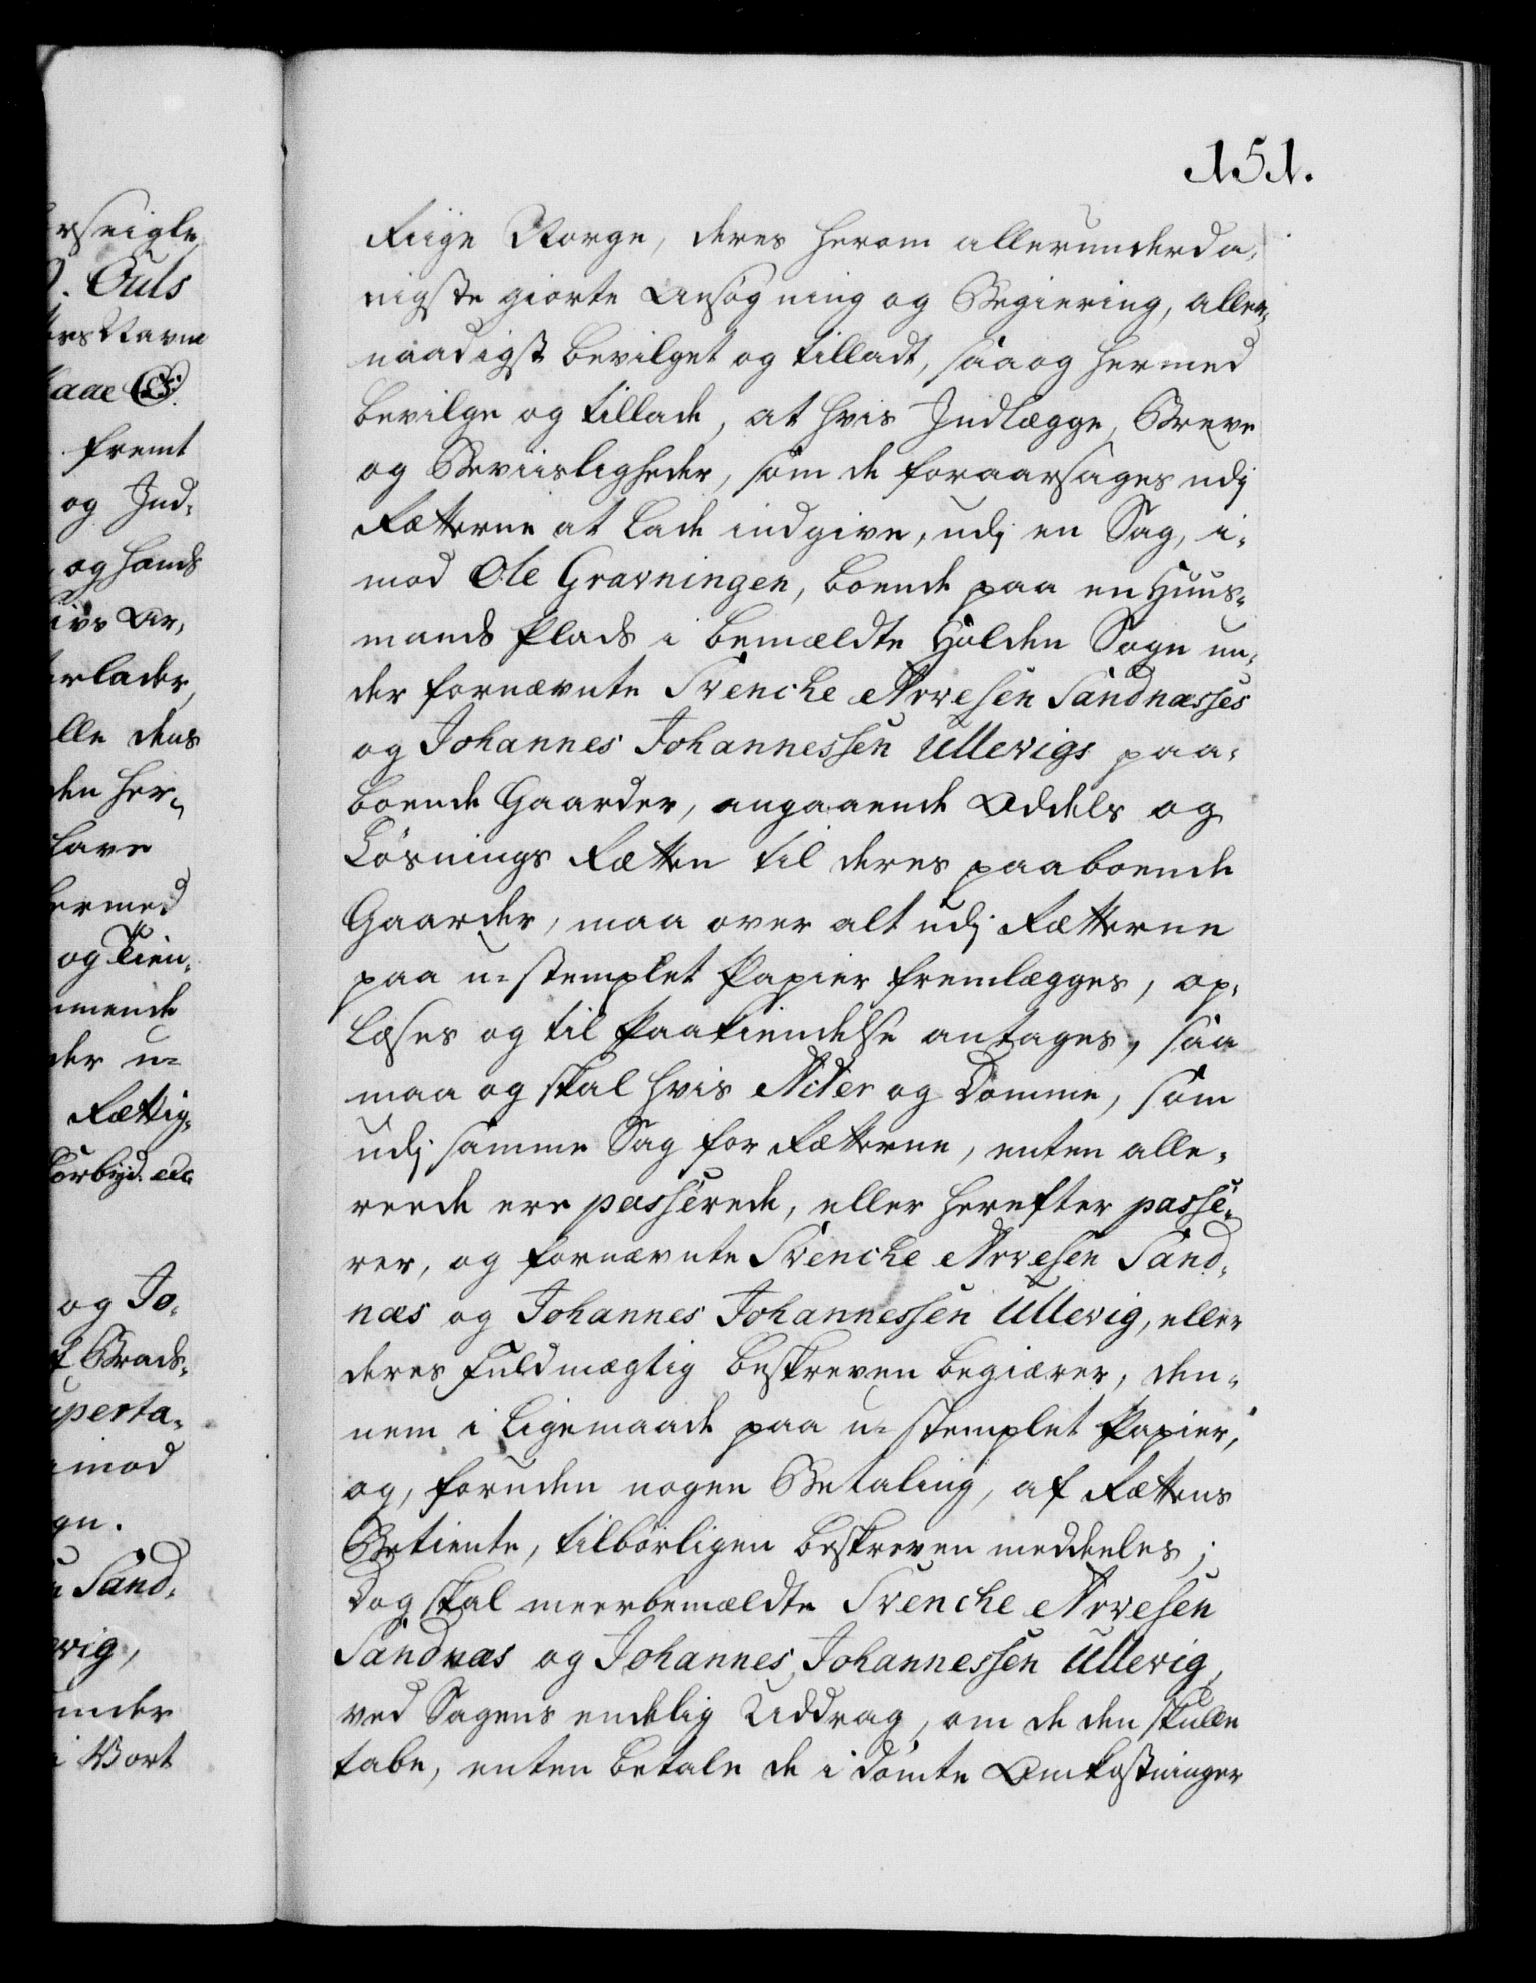 151.
Riige Norge, deres herom allerunderda-
nigste giorte Ansøgning og Begiering, aller-
naadigst bevilget og tilladt, saa og hermed
bevilge og tillade, at hvis Indlægge, Breve
og Beviisligheder, som de foraarsages udj
Retterne at lade indgive, udj en Sag, i-
mod Ole Gravningen, boende paa en Huus-
mands Plads i bemældte Holden Sogn un-
der fornævnte Svenche Arvesen Sandnæsses
og Johannes Johannessen Ullevigs paa-
boende Gaarder, angaaende Oddels og
Løsnings Retten til deres paaboende
Gaarder, maa over alt udj Retterne
paa u-stemplet Papier fremlægges, op-
læses og til Paakiendelse antages, saa
maa og skal hvis Acter og Domme, som
udj samme Sag for Retterne, enten alle-
reede ere passerede, eller herefter passe-
rer, og fornævnte Svenche Arvesen Sand-
næs og Johannes Johannessen Ullevig, eller
deres Fuldmægtig beskreven begiærer, den-
nem i Ligemaade paa u-stemplet Papier,
og, foruden nogen Betaling, af Rettens
Betiente, tilbørligen beskreven meddeeles;
Dog skal meerbemældte Svenche Arvesen
Sandnæs og Johannes Johannessen Ullevig,
ved Sagens endelig Uddrag, om de den skulle
tabe, enten betale de i dømte Omkostninger
rseigle
. Ouls
ers Navne
fremt
og Ind-
og hands
ivs Ar-
rlader
lle dens
den her-
lave
hermed
og Tien-
mende
der u-
Rettig-
Forbyd. etc.
og Jo-
f Brads-
uperta-
imod
gn.
n Sand-
vig,
under
i Vort